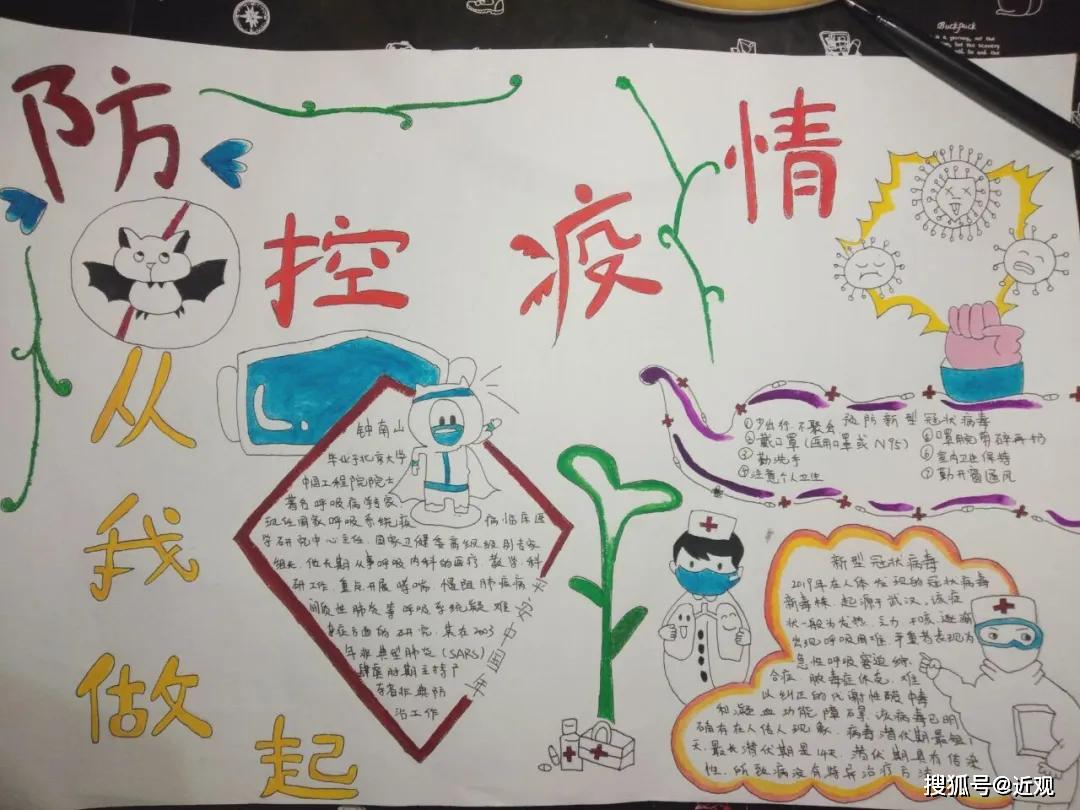 防
控
疫
情
从
我
做
起
钟南山
毕业于北京大学
中国工程院院士
著名呼吸病学专家
现任国家呼吸系统疾病临床医
学研究中心主任、国家卫健委高级别专家
组长，他长期从事呼吸内科的医疗、教学、科
研工作，重点开展哮喘，慢阻肺疾病、
间质性肺炎等呼吸系统疑难
杂症方面的研究，集在2003
年非典型肺炎(SARS)
肆虐时期主持广
东省非典防
治工作
预防新型冠状病毒
①少出行 不聚会
②戴口罩(医用口罩或N95)
③勤洗手
④注意个人卫生
⑤口罩脱剪碎再扔
⑥室内卫生保持
⑦勤开窗通风
新型冠状病毒
2019年在人体发现的冠状病毒
新毒株，起源于武汉，该症
状一般为发热、乏力、干咳、逐渐
出现呼吸困难，严重者表现为
急性呼吸窘迫综
合症、脓毒症休克、难
以纠正的代谢性酸中毒
和凝血功能障碍，该病毒已明
确有在人传人现象，病毒潜伏期最短1
天，最长潜伏期是14天，潜伏期具有传染
性，所致病没有特异治疗方法
Buckpuck
搜狐号@近观